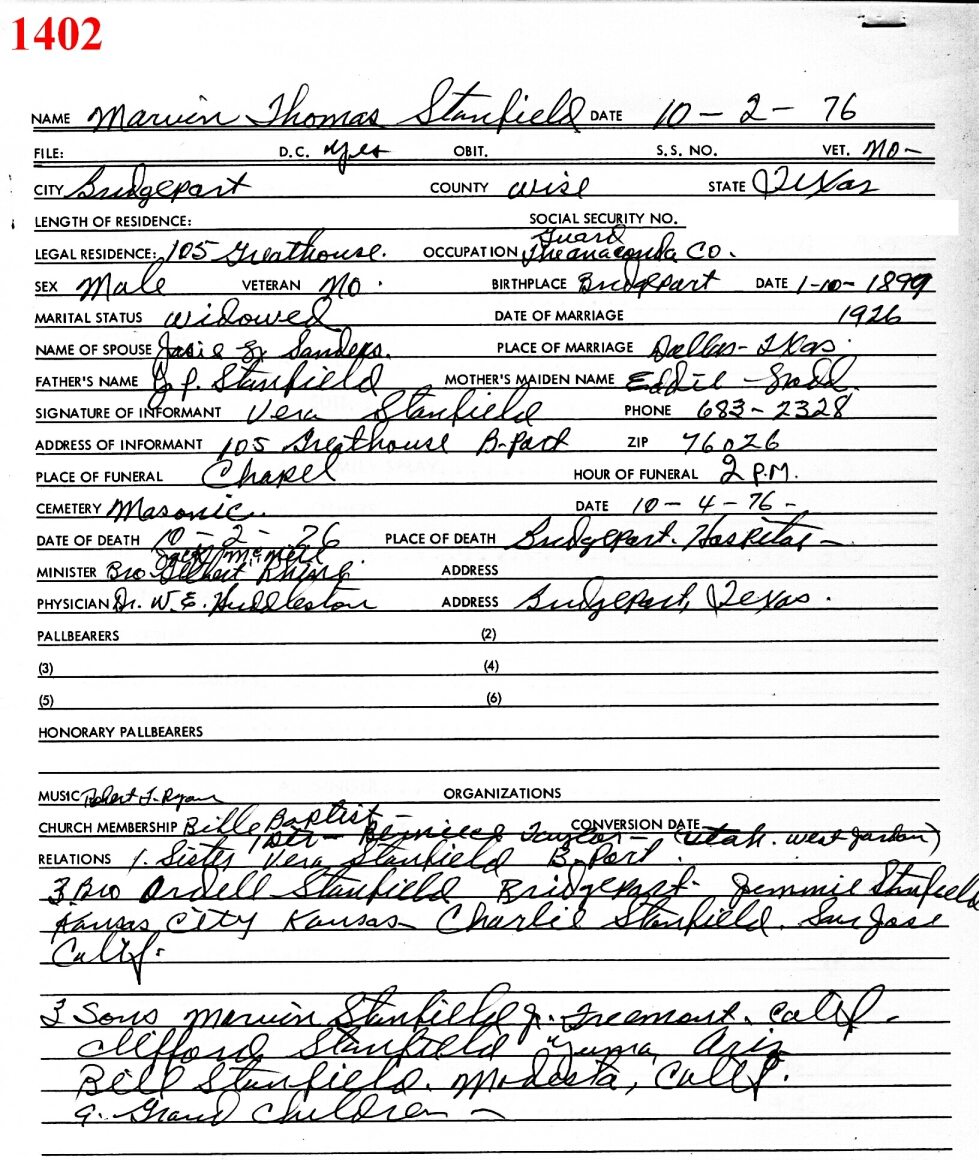 1402
NAME Marvin Thomas Stanfield DATE 10 - 2 - 76
FILE: D.C. yes OBIT. S.S. NO. VET. NO -
CITY Bridgeport COUNTY Wise STATE Texas
LENGTH OF RESIDENCE: SOCIAL SECURITY NO.
Guard
LEGAL RESIDENCE: 105 Greathouse. OCCUPATION The anaconda CO.
SEX Male VETERAN NO. BIRTHPLACE Bridgeport DATE 1-10-1899
MARITAL STATUS widowed DATE OF MARRIAGE 1926
NAME OF SPOUSE Josie Sanders. PLACE OF MARRIAGE Dallas - Texas.
FATHER'S NAME J. P. Stanfield MOTHER'S MAIDEN NAME Eddie
SIGNATURE OF INFORMANT Vera Stanfield PHONE 683-2328
ADDRESS OF INFORMANT 105 Greathouse B-Port ZIP 76026
PLACE OF FUNERAL Chapel HOUR OF FUNERAL 2 P.M.
CEMETERY Masonic DATE 10 - 4 - 76 -
DATE OF DEATH 10 - 2 - 76 PLACE OF DEATH Bridgeport. Hospital -
Jack McNeil
MINISTER Bro. ADDRESS
PHYSICIAN Dr. W. E. Huddleston ADDRESS Bridgeport, Texas.
PALLBEARERS (2)
(3) (4)
(5) (6)
HONORARY PALLBEARERS
MUSIC Robert J. Ryan ORGANIZATIONS
CHURCH MEMBERSHIP Bible Baptist - CONVERSION DATE
1 Dtr - Berniece Taylor - (Utah. West Jordan)
RELATIONS 1. Sister Vera Stanfield B-Port.
3 Bro Ordell Stanfield Bridgeport - Jemmie Stanfield
Kansas City Kansas - Charlie Stanfield. San Jose
Calif.
3 Sons Marvin Stanfield Jr. Freemont. Calif -
Clifford Stanfield Yuma, Ariz
Bill Stanfield. Modesta, Calif.
9. Grand Children -